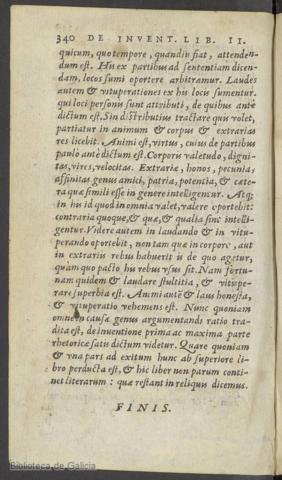 340 DE INVENT. LIB. II.
quicum, quo tempore, quandiu fiat, attenden-
dum est. His ex partibus ad sententiam dicen-
dam, locos sumi oportere arbitramur. Laudes
autem & vituperationes ex his locis sumentur.
qui loci personis sunt attributi, de quibus antè
dictum est. Sin distributius tractare quis volet,
partiatur in animum & corpus & extrarias
res licebit. Animi est, virtus, cuius de partibus
paulo antè dictum est. Corporis valetudo, digni-
tas, vires, velocitas. Extrariæ, honos, pecunia,
affinitas genus amici, patria, potentia, & cæte-
ra quæ simili esse in genere intelligentur. Atq;
in his id quod in omnia valet, valere oportebit:
contraria quoque, & quæ, & qualia sint intelli-
gentur. Videre autem in laudando & in vitu-
perando oportebit, non tam quæ in corpore, aut
in extrariis rebus habuerit is de quo agetur,
quàm quo pacto his rebus vsus sit. Nam fortu-
nam quidem & laudare stultitia, & vitupe-
rare superbia est. Animi autẽ & laus honesta,
& vituperatio vehemens est. Nunc quoniam
omnem causæ genus argumentandi ratio tra-
dita est, de inuentione prima ac maxima parte
rhetoricæ satis dictum videtur. Quare quoniam
& vna pars ad exitum hunc ab superiore li-
bro perducta est, & hic liber non parum conti-
net literarum : quæ restant in reliquis dicemus.
FINIS.
Biblioteca de Galicia